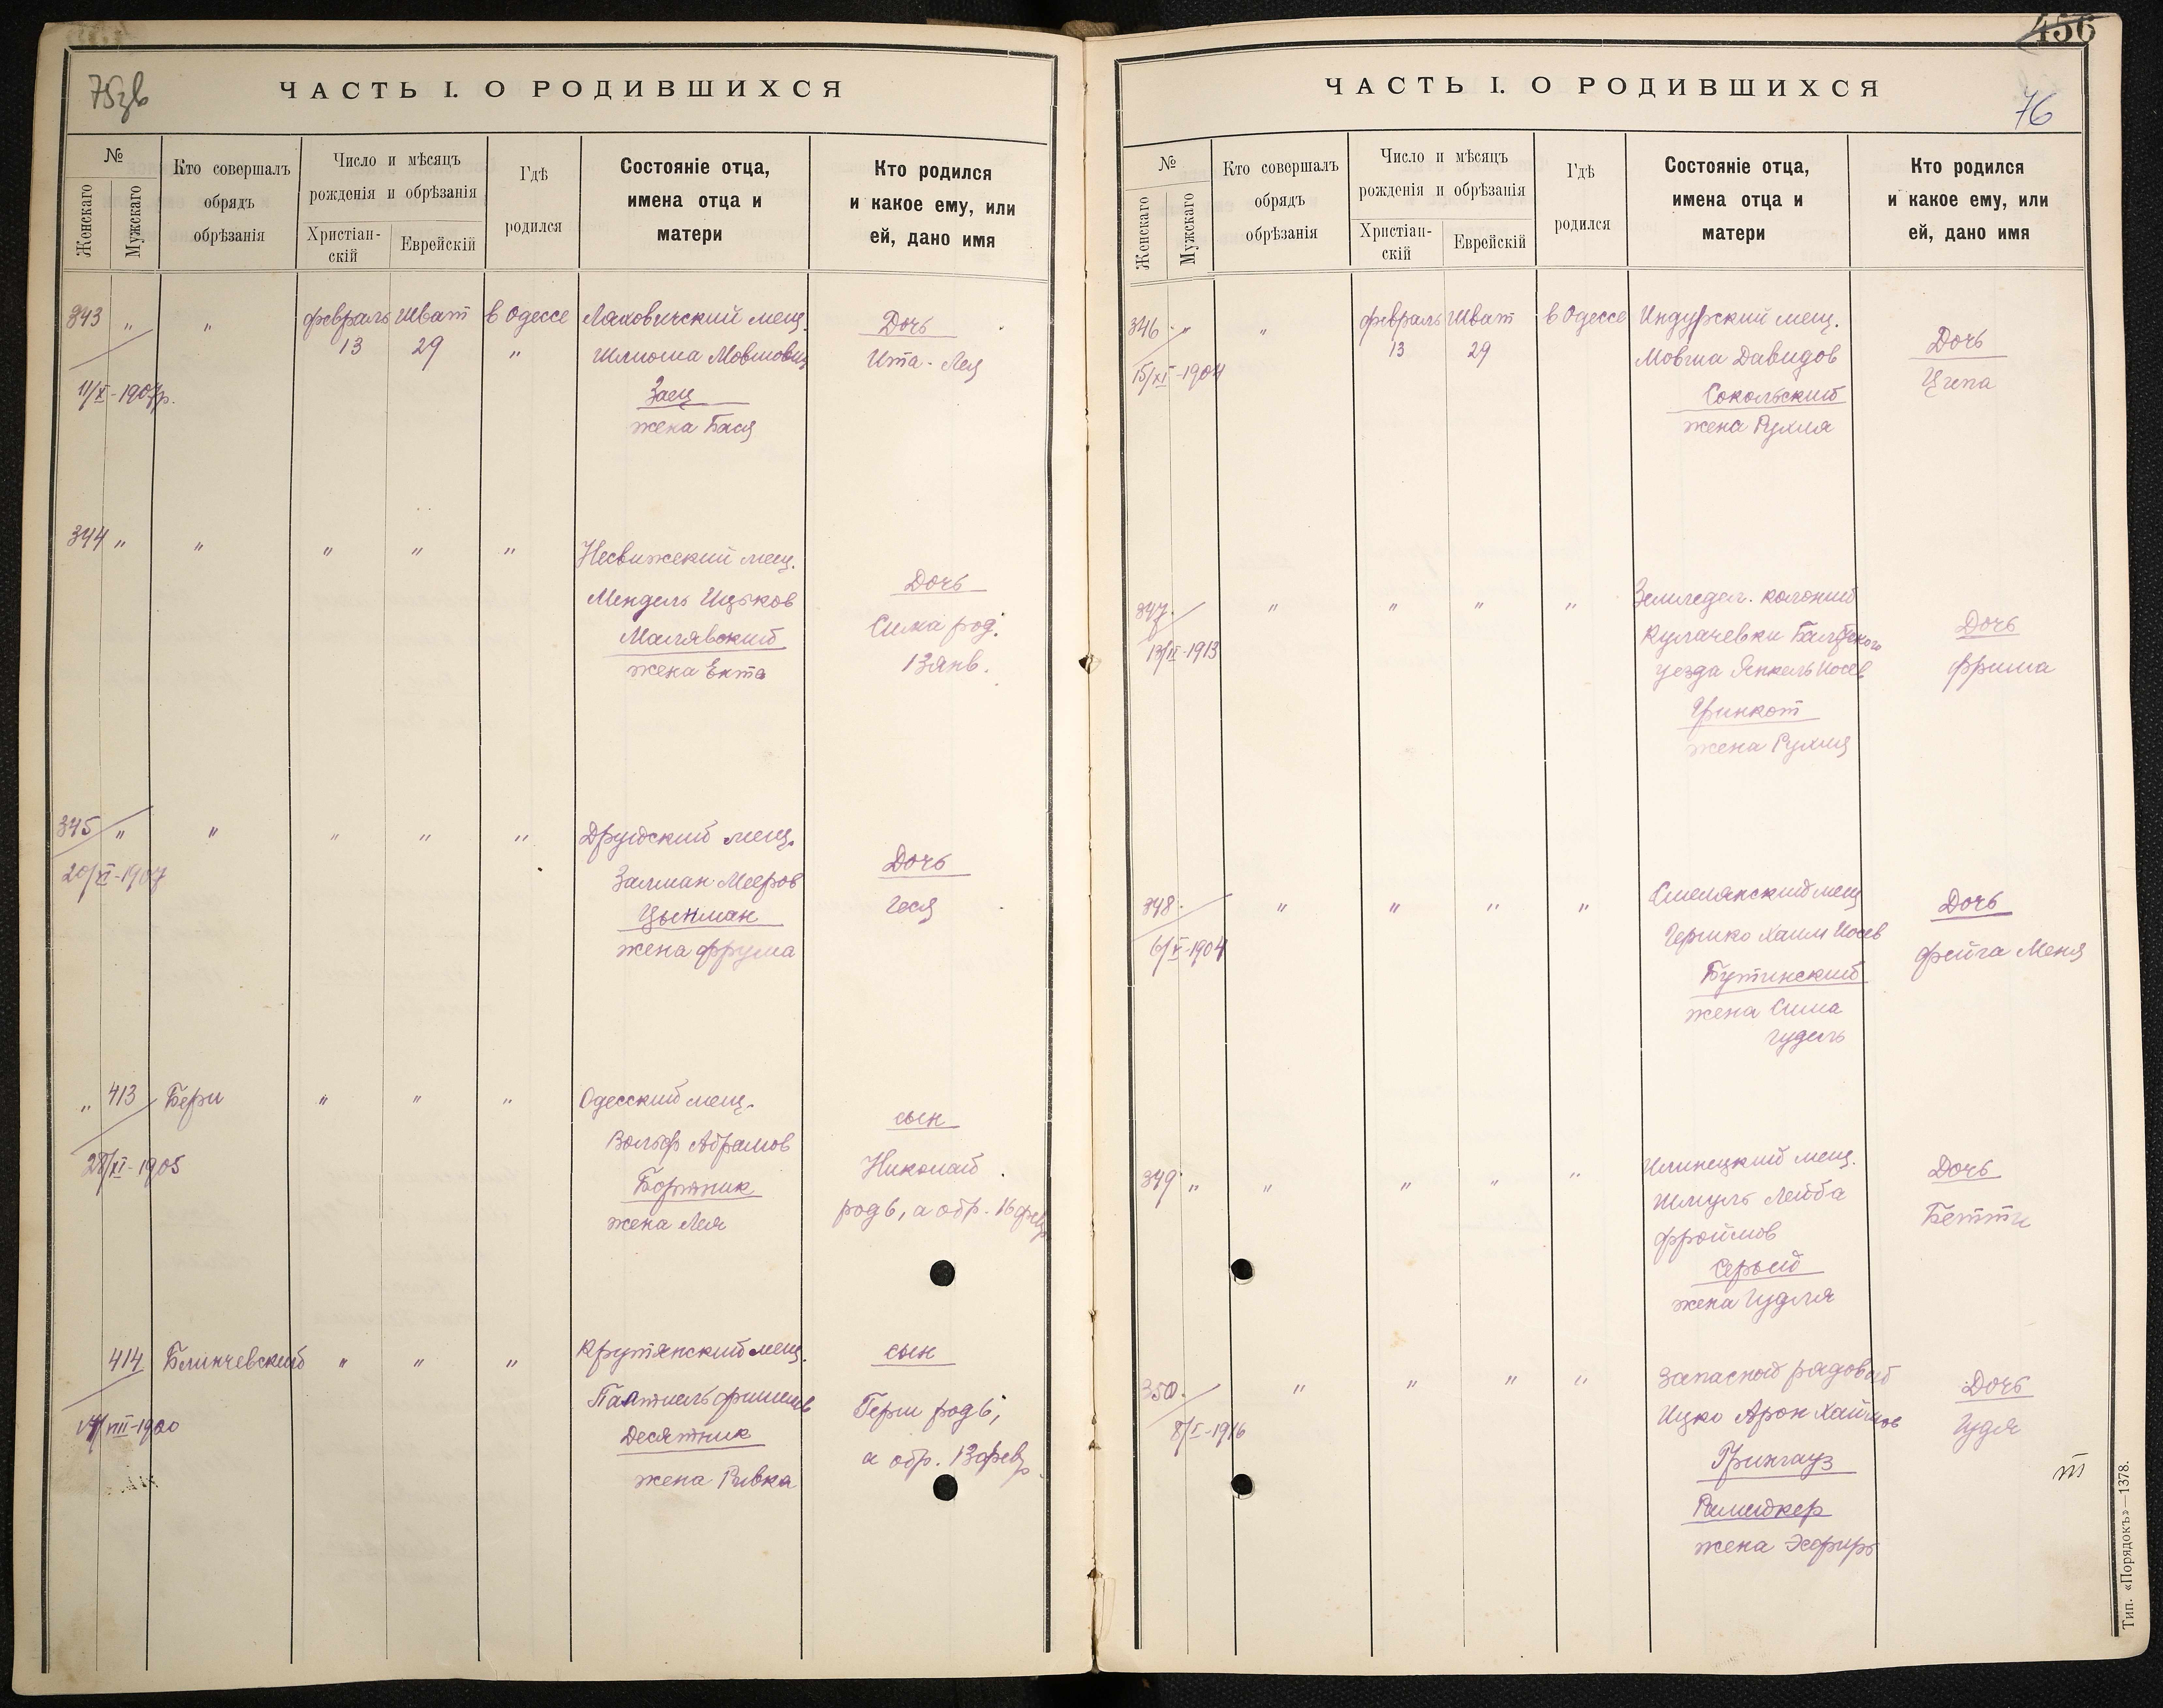 75 зв
ЧАСТЬ I. О РОДИВШИХСЯ
№
Женскаго
Мужскаго
Кто совершалъ
обрядъ
обрѣзанія
Число и мѣсяцъ
рожденія и обрѣзанія
Христіан-
скій
Еврейскій
Гдѣ
родился
Состояніе отца,
имена отца и
матери
Кто родился
и какое ему, или
ей, дано имя
343 " " февраль Шват в Одессе Ляховичский мещ. Дочь
13 29 " Шлиома Мовшович Ита-Лея
11/X-1907 р. Заец
жена Бася
344 " " " " " Несвижский мещ.
Мендель Ицьков Дочь
Малявский Сима род.
жена Екта 13 янв.
345 " " " " " Друйский мещ.
20/XI-1907 Залман Мееров Дочь
Цынман Геся
жена Фрума
" 413 Берш " " " Одесский мещ.
Вольф Абрамов сын
28/XI-1905 Бортник Николай
жена Лея род 6, а обр. 16 фев
414 Блинчевский " " " Крутянский мещ. сын
Палтиель Фишелев Герш род 6,
14/VIII-1920 Десятник а обр. 13 февр.
жена Ривка
456
ЧАСТЬ I. О РОДИВШИХСЯ
76
№
Женскаго
Мужскаго
Кто совершалъ
обрядъ
обрѣзанія
Число и мѣсяцъ
рожденія и обрѣзанія
Христіан-
скій
Еврейскій
Гдѣ
родился
Состояніе отца,
имена отца и
матери
Кто родился
и какое ему, или
ей, дано имя
346 " " февраль Шват в Одессе Индурский мещ.
13 29 Мовша Давидов Дочь
15/XI-1904 Сокольский Ципа
жена Рухля
347. " " " " Земледел. колонии
13/IX-1913 Кулачевки Балтского Дочь
уезда Янкель Иосев Фрима
Гринкот
жена Рухля
348. " " " " Смелянский мещ Дочь
6/V-1904 Гершко Хаим Иосев Фейга Меня
Бутинский
жена Сима
Гудель
349 " " " " " Илинецкий мещ. Дочь
Шмуль Лейба Бетти
Фроймов
Серый
жена Гудля
350. " " " " Запасной рядовой Дочь
8/I-1916 Ицко Арон Хаймов Идя
Грингауз
жена Эсфирь
Тип. «Порядокъ»—1378.